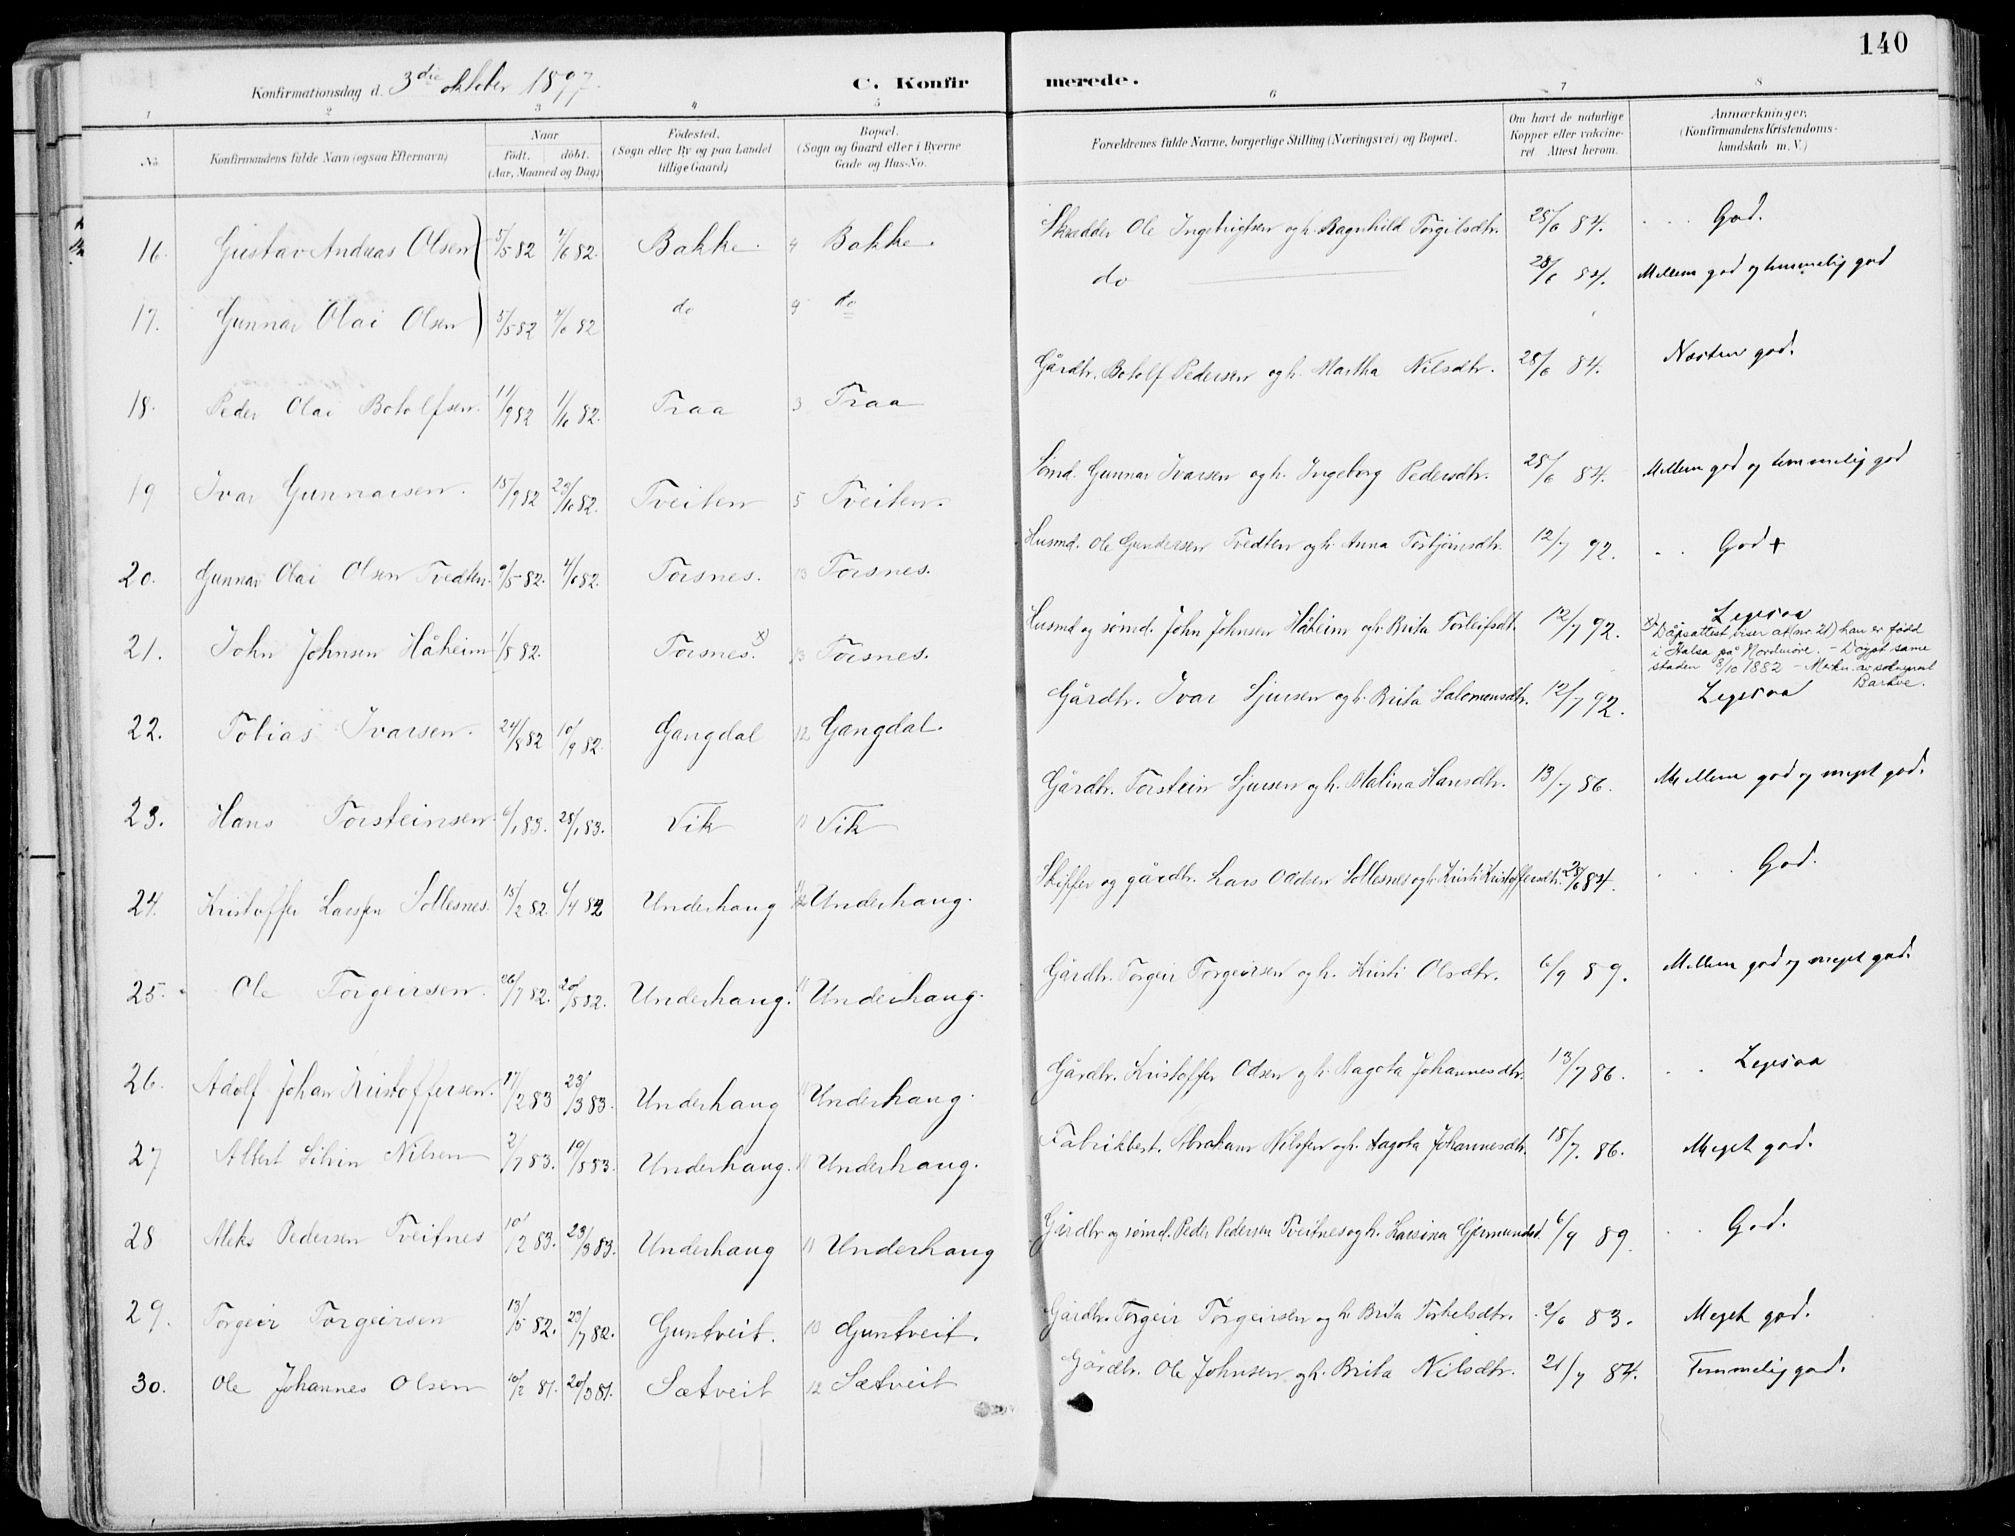 140
Konfirmationsdag d. 3die oktober 1897.
C. Konfirmerede.
1 2 3 4 5 6 7 8
No. Konfirmandens fulde Navn (ogsaa Efternavn) Naar født. døbt. (Aar, Maaned og Dag) Fødested. (Sogn eller By og paa Landet tillige Gaard) Bopæl. (Sogn og Gaard eller i Byerne Gade og Hus-No. Forældrenes fulde Navne, borgerlige Stilling (Næringsvei) og Bopæl. Om havt de naturlige Kopper eller vakcineret. Attest herom. Anmærkninger. (Konfirmandens Kristendomskundskab m. V.)
16. Gustav Andreas Olsen 5/5 82 4/6 82. Bakke. 9 Bakke. Skrædder Ole Ingebrigtsen og h. Ragnhild Torgilsdtr. 28/6 84. God.
17. Gunnar Olai Olsen 5/5 82 4/6 82 do 9 do do 28/6 84. Mellem god og temmelig god
18. Peder Olai Botolfsen. 11/9 82 1/10 82. Traa 3 Traa Gårdbr. Botolf Pedersen og h. Martha Nilsdtr. 28/6 84. Næsten god.
19 Ivar Gunnarsen. 15/9 82 29/10 82. Tveiten 5 Tveiten. Sømd. Gunnar Ivarsen og h. Ingeborg Pedersdtr. 28/6 84. Mellem god og temmelig god
20. Gunnar Olai Olsen Tvedten. 9/5 82. 4/6 82. Torsnes. 13 Torsnes. Husmd. Ole Gundersen Tvedten og h. Anna Torbjørnsdtr. 12/7 92. God +
21. John Johnsen Håheim 1/8 82. Torsnes. x) 13 Torsnes. Husmd og sømd. John Johnsen Håheim og h. Brita Torleifsdt. 12/7 92. Ligesaa
x) Dåpsattest viser at (nr. 21) han er född
i Halsa på Nordmöre. - Döypt same
staden 8/10 1882 - Merkn. av sokneprest
Barkve.
22. Tobias Ivarsen. 24/8 82 10/9 82. Gangdal 12 Gangdal. Gårdbr. Ivar Sjursen og h. Brita Salomonsdtr. 12/7 92. Ligesaa
23. Hans Torsteinsen. 6/1 83. 28/1 83. Vik 11 Vik Gårdbr. Torstein Sjursen og h. Malina Hansdtr. 13/7 86. Mellem god og meget god.
24. Kristoffer Larssen Sollesnes. 15/2 82. 6/4 82 Underhaug Underhaug. Skipper og gårdbr. Lars Oddsen Sollesnes og h. Kristi Kristoffersdtr. 28/6 84. God.
25. Ole Torgeirsen. 26/7 82. 20/8 82. Underhaug. 11 Underhaug. Gårdbr. Torgeir Torgeirsen og h. Kristi Olsdtr. 6/9 89. Mellem god og meget god.
26. Adolf Johan Kristoffersen. 17/2 83 23/3 83. Underhaug 11 Underhaug. Gårdbr. Kristoffer Odsen og h. Magota Johannesdtr. 13/7 86. Ligesaa
27 Albert Silvin Nilsen 2/7 83. 19/8 83. Underhaug. 11 Underhaug. Fabrikbest. Abraham Nilssen og h. Aagota Johannesdtr. 15/7. 86. Meget god.
28 Aleks Pedersen Tveitnes 10/2 83. 23/3 83. Underhaug 11 Underhaug Gårdbr og sømd. Peder Pedersen Tveitnes og h. Larsina Gjermundsd. 6/9 89. God.
29. Torgeir Torgeirsen 13/5 82. 23/7 82. Guntveit. 10 Guntveit. Gårdbr. Torgeir Torgeirsen og h Brita Torkelsdtr. 2/6 83. Meget god.
30. Ole Johannes Olsen 10/2 81. 20/3 81. Sætveit 12 Sætveit Gårdbr. Ole Johnsen og h. Brita Nilsdtr. 21/7 84. Temmelig god.